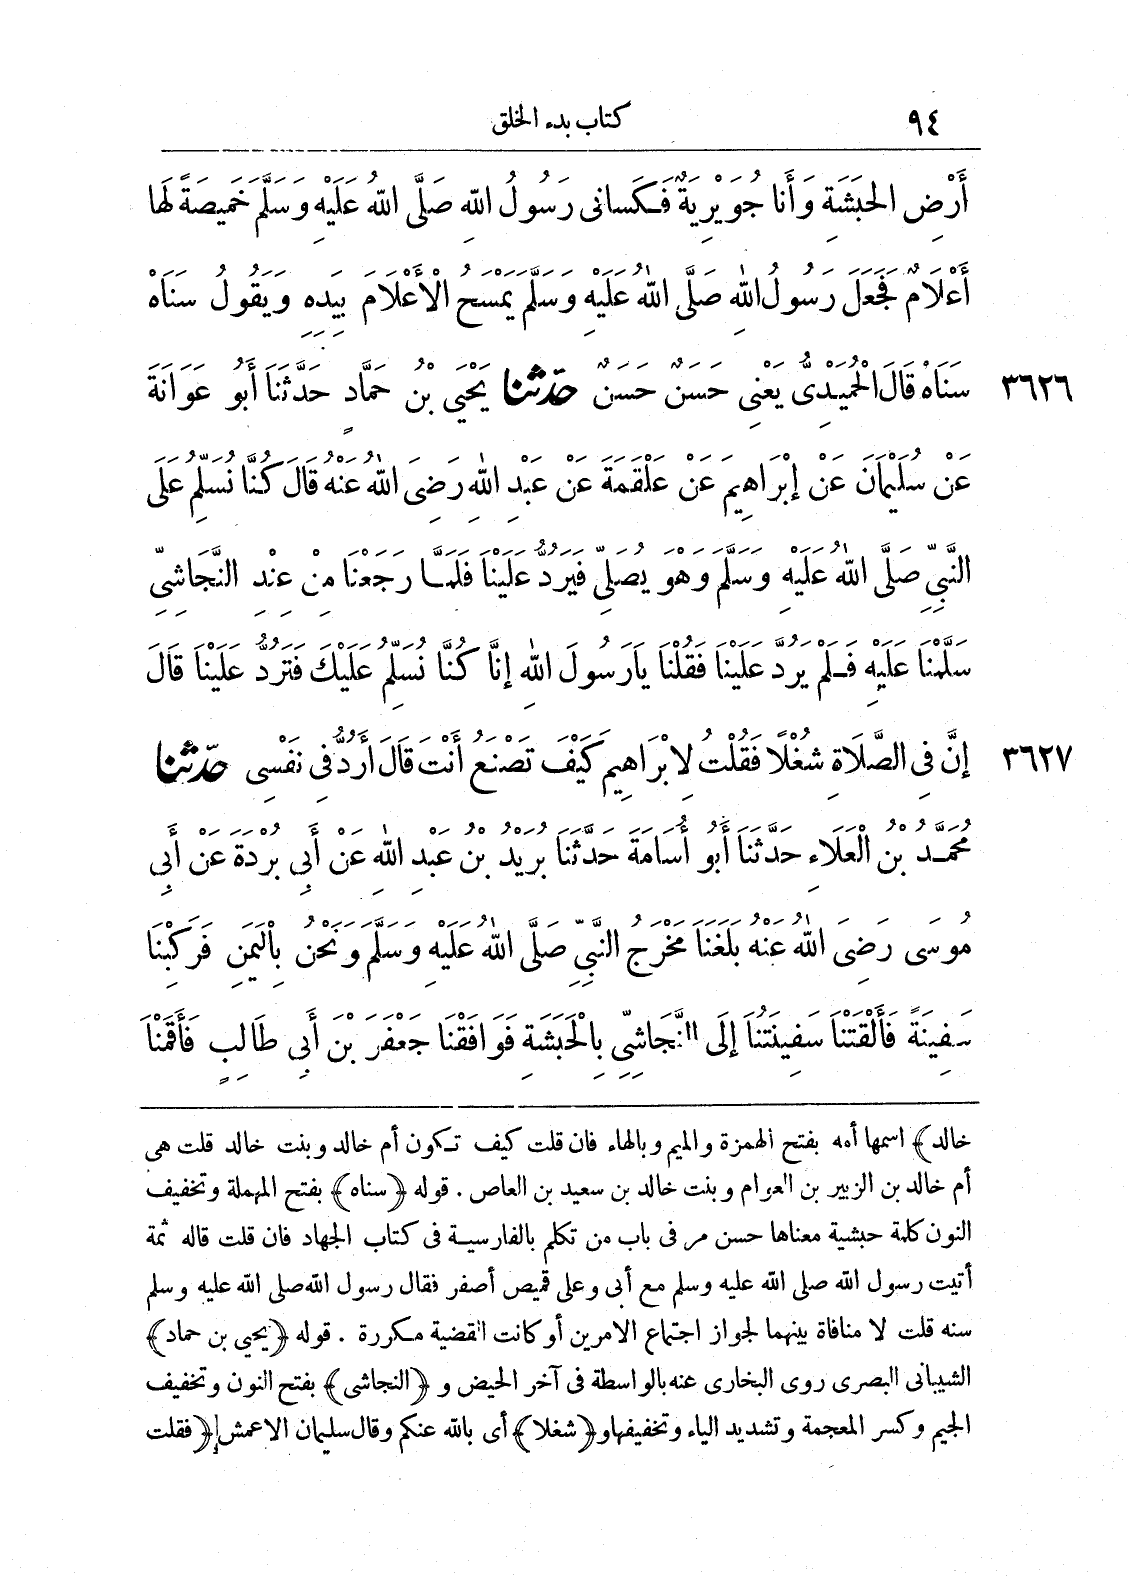 ٩٤
كتاب بدء الخلق
أَرْضِ الحَبَشَةِ وَأَنا جُوَيْرِيَةٌ فَكَسانِى رَسُولُ اللهِ صَلَّى اللهُ عَلَيْهِ وَسَلَّمَ خَمِيصَةً لَها
أَعْلَامٌ فَجَعَلَ رَسُولُ اللهِ صَلَّى اللهُ عَلَيْهِ وَسَلَّمَ يَمْسَحُ الْأَعْلَامَ بِيَدِهِ وَيَقُولُ سَنَاهْ
سَنَاهْ قَالَ الْحُمَيْدِىُّ يَعْنِى حَسَنٌ حَسَنٌ حَدَّثَنا يَحْيَى بْنُ حَمَّادٍ حَدَّثَنَا أَبُو عَوَانَةَ
٣٦٢٦
عَنْ سُلَيْمَانَ عَنْ إِبْرَاهِيمَ عَنْ عَلْقَمَةَ عَنْ عَبْدِ اللهِ رَضِىَ اللهُ عَنْهُ قَالَ كُنَّا نُسَلِّمُ عَلَى
النَّبِىِّ صَلَّى اللهُ عَلَيْهِ وَسَلَّمَ وَهْوَ يُصَلِّى فَيَرُدُّ عَلَيْنَا فَلَمَّا رَجَعْنَا مِنْ عِنْدِ النَّجَاشِىِّ
سَلَّمْنَا عَلَيْهِ فَلَمْ يَرُدَّ عَلَيْنَا فَقُلْنَا يَارَسُولَ اللهِ إِنَّا كُنَّا نُسَلِّمُ عَلَيْكَ فَتَرُدُّ عَلَيْنَا قَالَ
إِنَّ فِى الصَّلَاةِ شُغْلًا فَقُلْتُ لِإِبْرَاهِيمَ كَيْفَ تَصْنَعُ أَنْتَ قَالَ أَرُدُّ فِى نَفْسِى حَدَّثَنا
٣٦٢٧
مُحَمَّدُ بْنُ الْعَلَاءِ حَدَّثَنَا أَبُو أُسَامَةَ حَدَّثَنَا بُرَيْدُ بْنُ عَبْدِ اللهِ عَنْ أَبِى بُرْدَةَ عَنْ أَبِى
مُوسَى رَضِىَ اللهُ عَنْهُ بَلَغَنَا مَخْرَجُ النَّبِىِّ صَلَّى اللهُ عَلَيْهِ وَسَلَّمَ وَنَحْنُ بِالْيَمَنِ فَرَكِبْنَا
سَفِينَةً فَأَلْقَتْنَا سَفِينَتُنَا إِلَى النَّجَاشِىِّ بِالْحَبَشَةِ فَوَافَقْنَا جَعْفَرَ بْنَ أَبِى طَالِبٍ فَأَقَمْنَا
خالد﴾ اسمها أمه بفتح الهمزة والميم وبالهاء فان قلت كيف تكون أم خالد وبنت خالد قلت هى
أم خالد بن الزبير بن العوام وبنت خالد بن سعيد بن العاص . قوله ﴿سناه﴾ بفتح المهملة وتخفيف
النون كلمة حبشية معناها حسن مر فى باب من تكلم بالفارسية فى كتاب الجهاد فان قلت قاله ثمة
أتيت رسول الله صلى الله عليه وسلم مع أبى وعلى قميص أصفر فقال رسول الله صلى الله عليه وسلم
سنه قلت لا منافاة بينهما لجواز اجتماع الامرين أو كانت القضية مكررة . قوله ﴿يحيى بن حماد﴾
الشيبانى البصرى روى البخارى عنه بالواسطة فى آخر الحيض و ﴿النجاشى﴾ بفتح النون وتخفيف
الجيم وكسر المعجمة وتشديد الياء وتخفيفها و﴿شغلا﴾ أى بالله عنكم وقال سليمان الاعمش ﴿فقلت